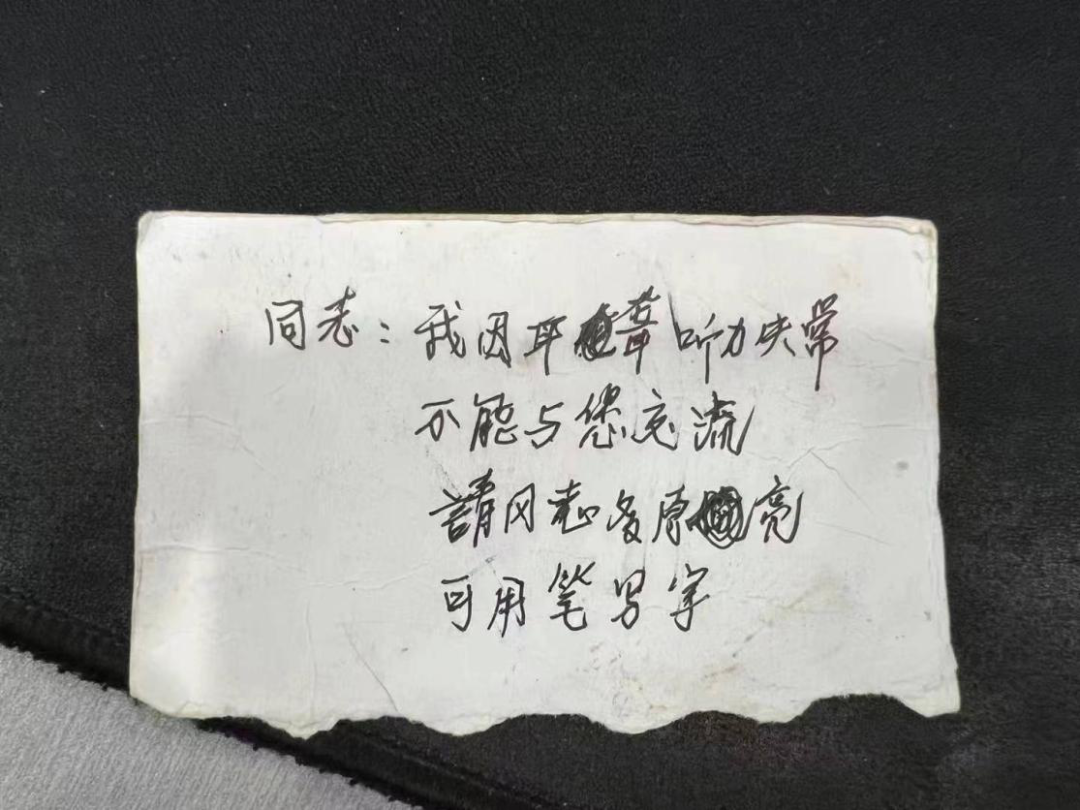 同志：我因耳聋听力失常
不能与您交流
請同志多原亮
可用笔写字